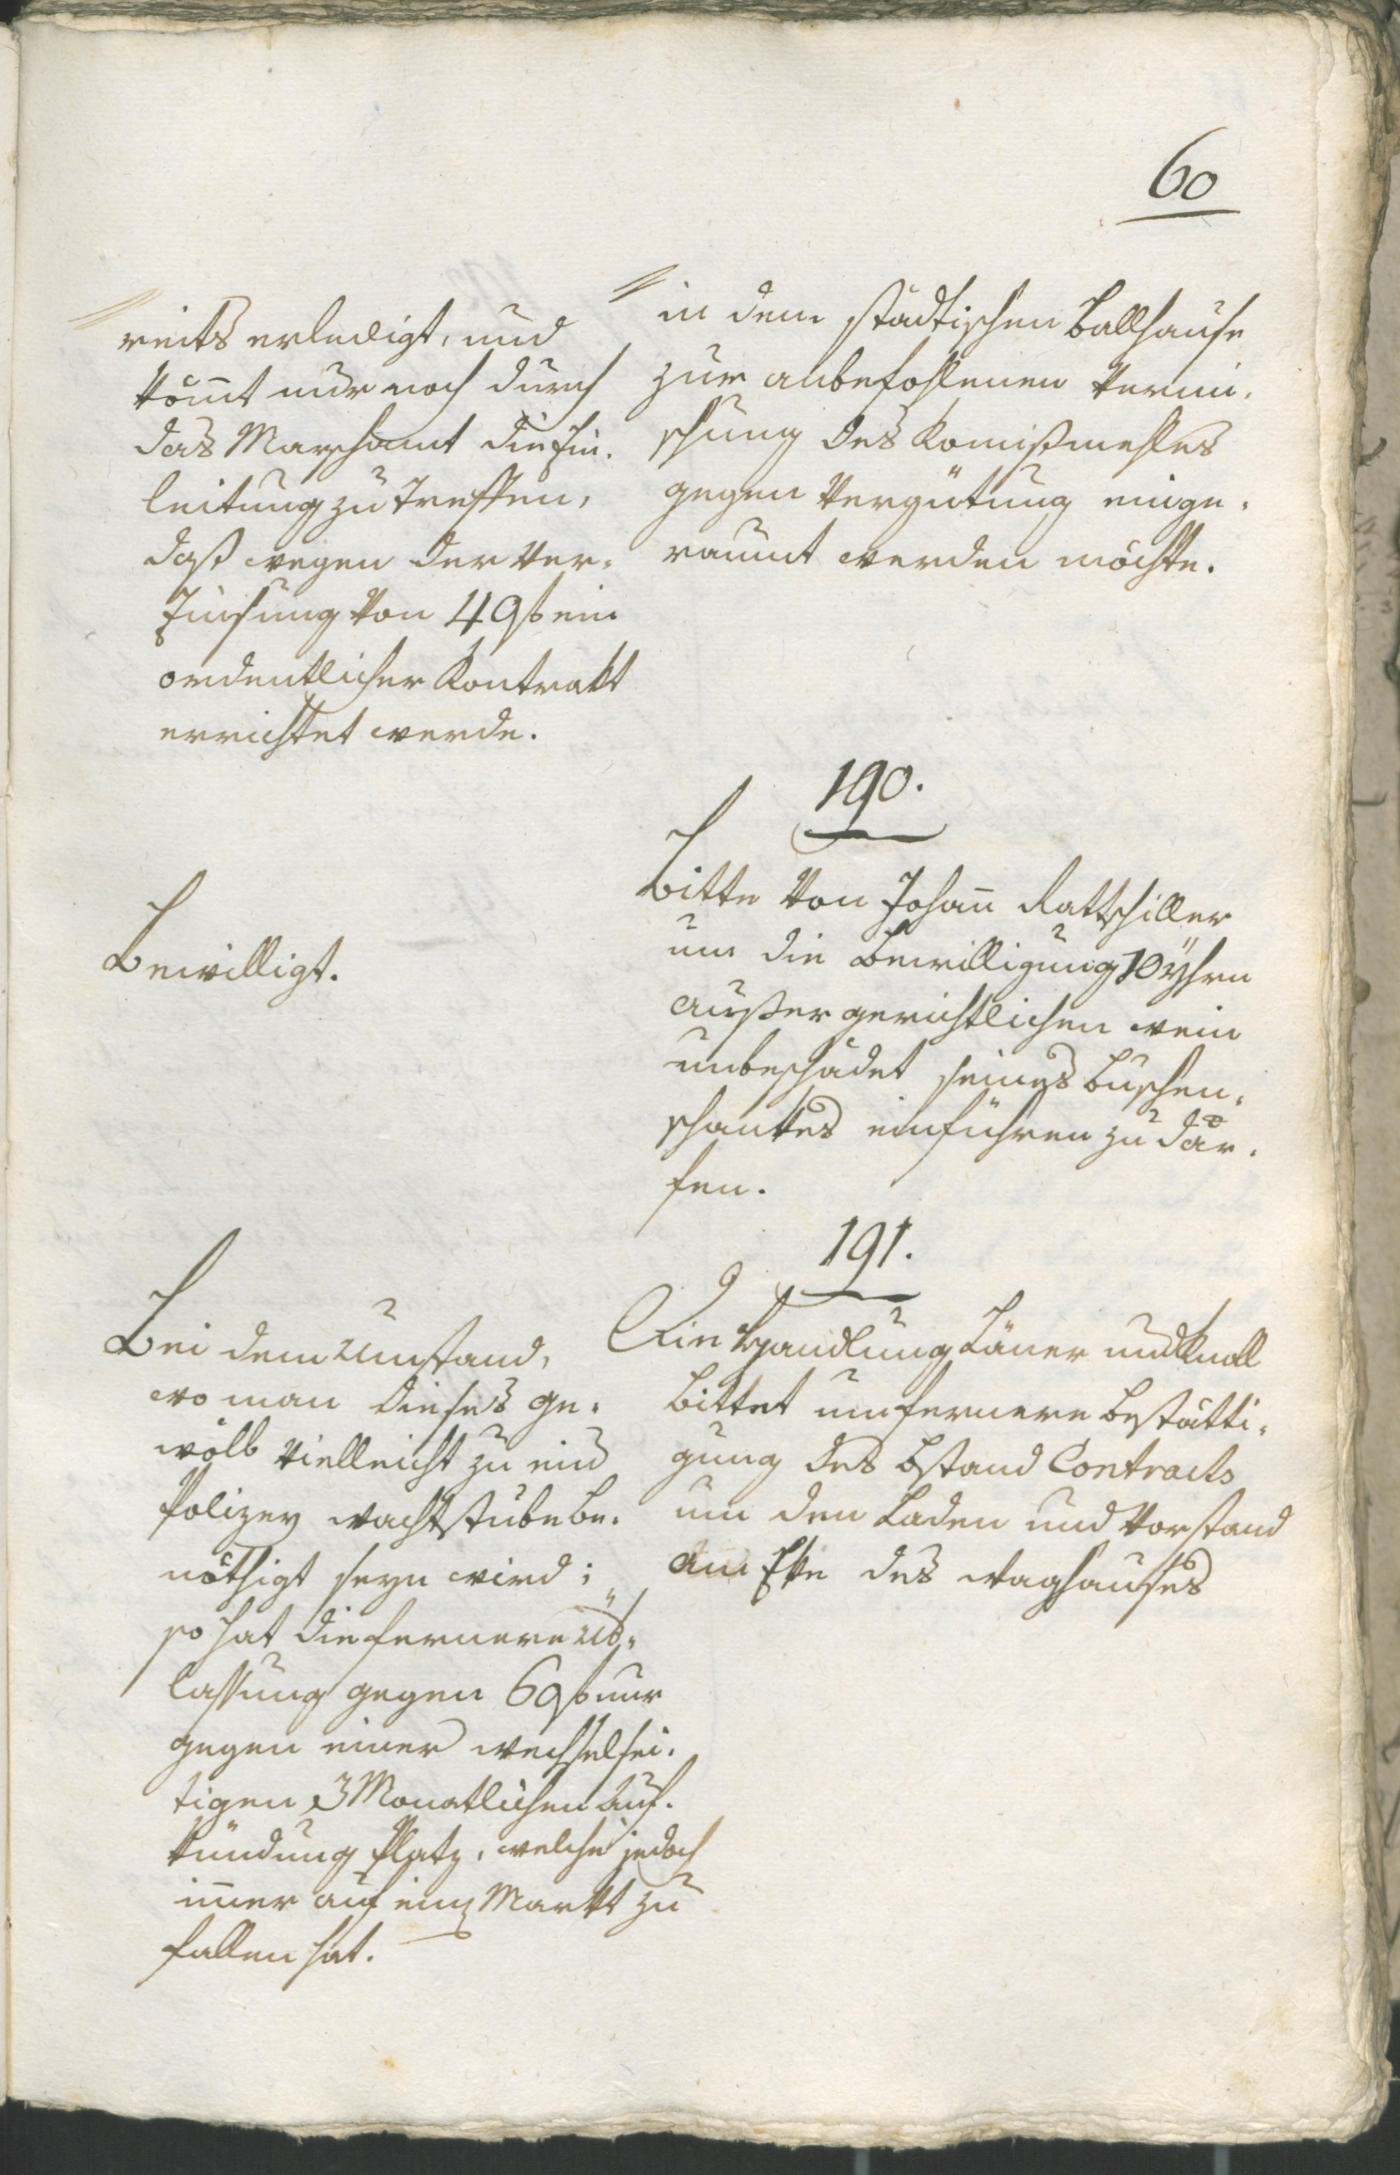 60
reits erledigt, und
kömt nur noch durch
das Marschamt die Ein-
leitung zu treffen,
daß wegen der Ver-
zinsung von 49 f ein
ordentlicher Kontrakt
errichtet werde.
in dem städtischen Ballhause
zur anbefohlenen Vermi-
schung des Komißmehles
gegen Vergütung einge-
raumt werden möchte.
190.
Bewilligt.
Bitte von Johann Rattschiller
um die Bewilligung 10 Yhrn
außergerichtlichen Wein
unbeschadet seines Buschen-
schankes einführen zu dür-
fen.
191.
Bei dem Umstand,
wo man dieses Ge-
wölb vielleicht zu ein
Polizey Wachtstube be-
nöthigt seyn wird;
so hat die fernere Üb-
lassung gegen 69 f nur
gegen einer wechselsei-
tigen 3 Monatlichen Auf-
kündung Platz, welche jedoch
imer auf einz Markt zu
fallen hat.
Die Handlung Läner und Knoll
bittet um fernere Bestätti-
gung des Bstand Contracts
um den Laden und Vorstand
am Eke des Waghauses